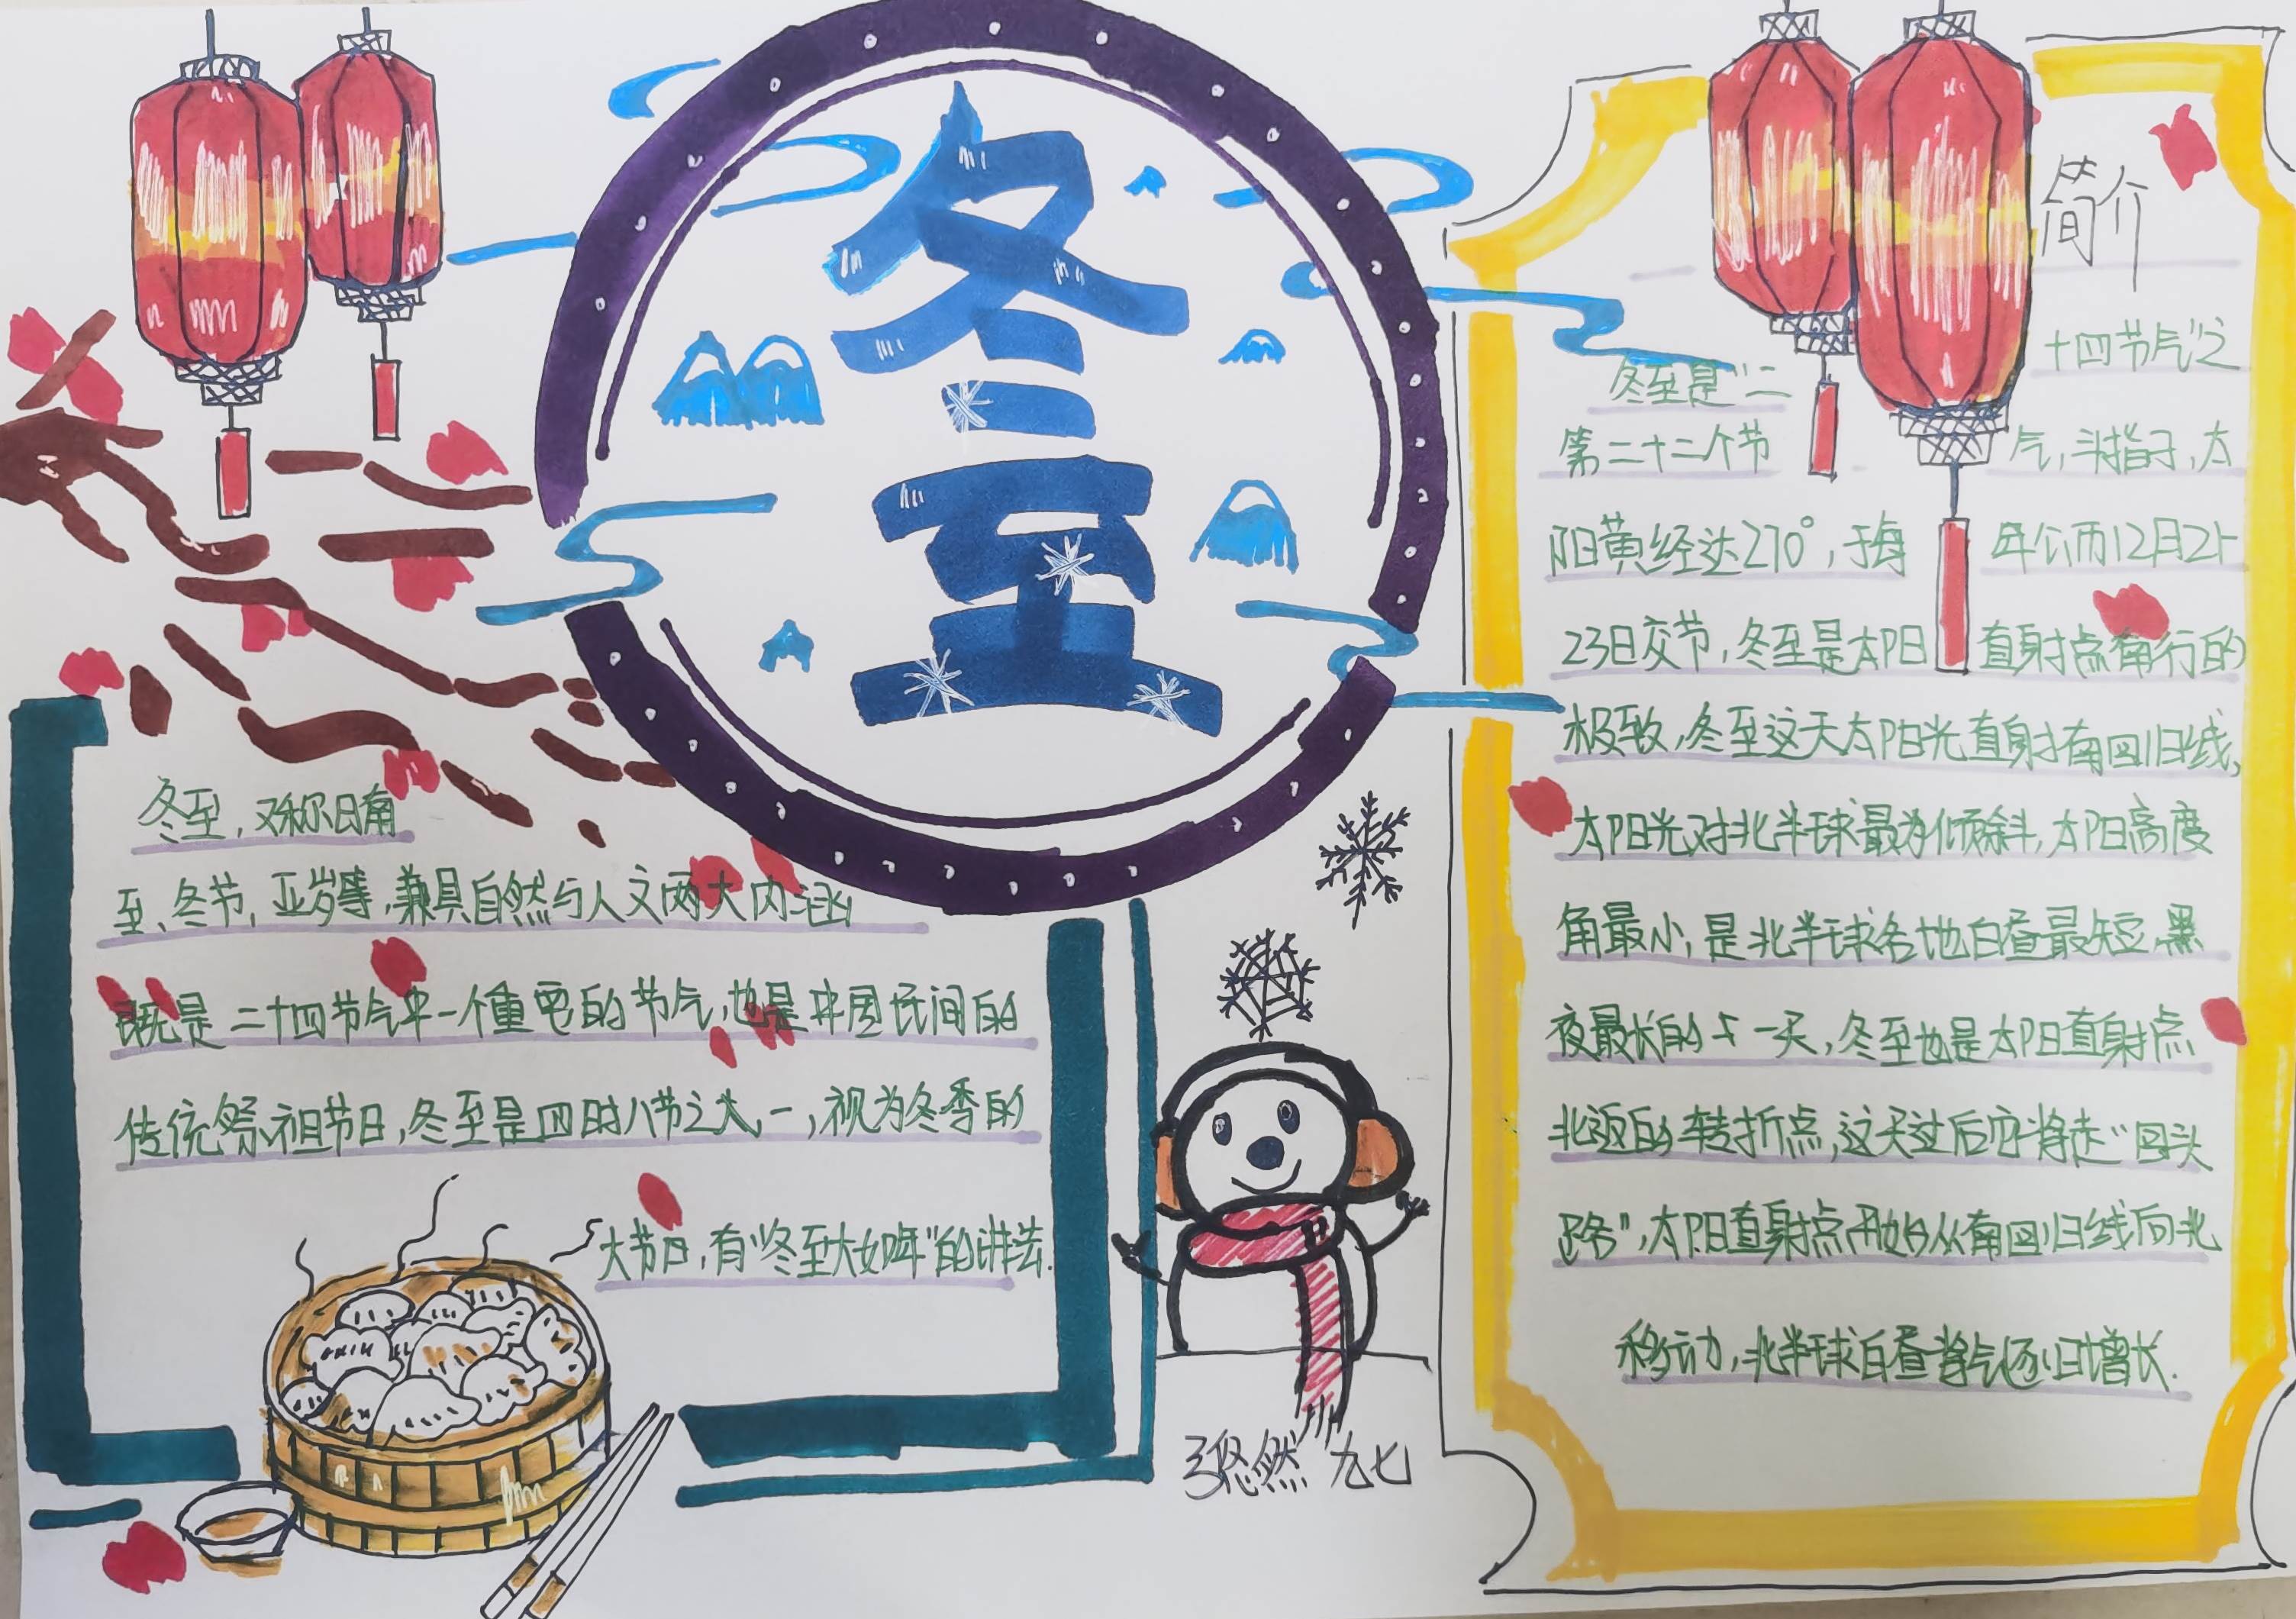 冬至
冬至，又称日南
至、冬节、亚岁等，兼具自然与人文两大内涵
既是二十四节气中一个重要的节气，也是中国民间的
传统祭祖节日，冬至是四时八节之大一，视为冬季的
大节日，有“冬至大如年”的讲法.
简介
冬至是“二十四节气”之
第二十二个节气，斗指子，太
阳黄经达270°，于每年公历12月21-
23日交节，冬至是太阳直射点南行的
极致，冬至这天太阳光直射南回归线，
太阳光对北半球最为倾斜，太阳高度
角最小，是北半球各地白昼最短、黑
夜最长的一天，冬至也是太阳直射点
北返的转折点，这天过后它将走“回头
路”，太阳直射点开始从南回归线向北
移动，北半球白昼将逐日增长.
悠然 九七